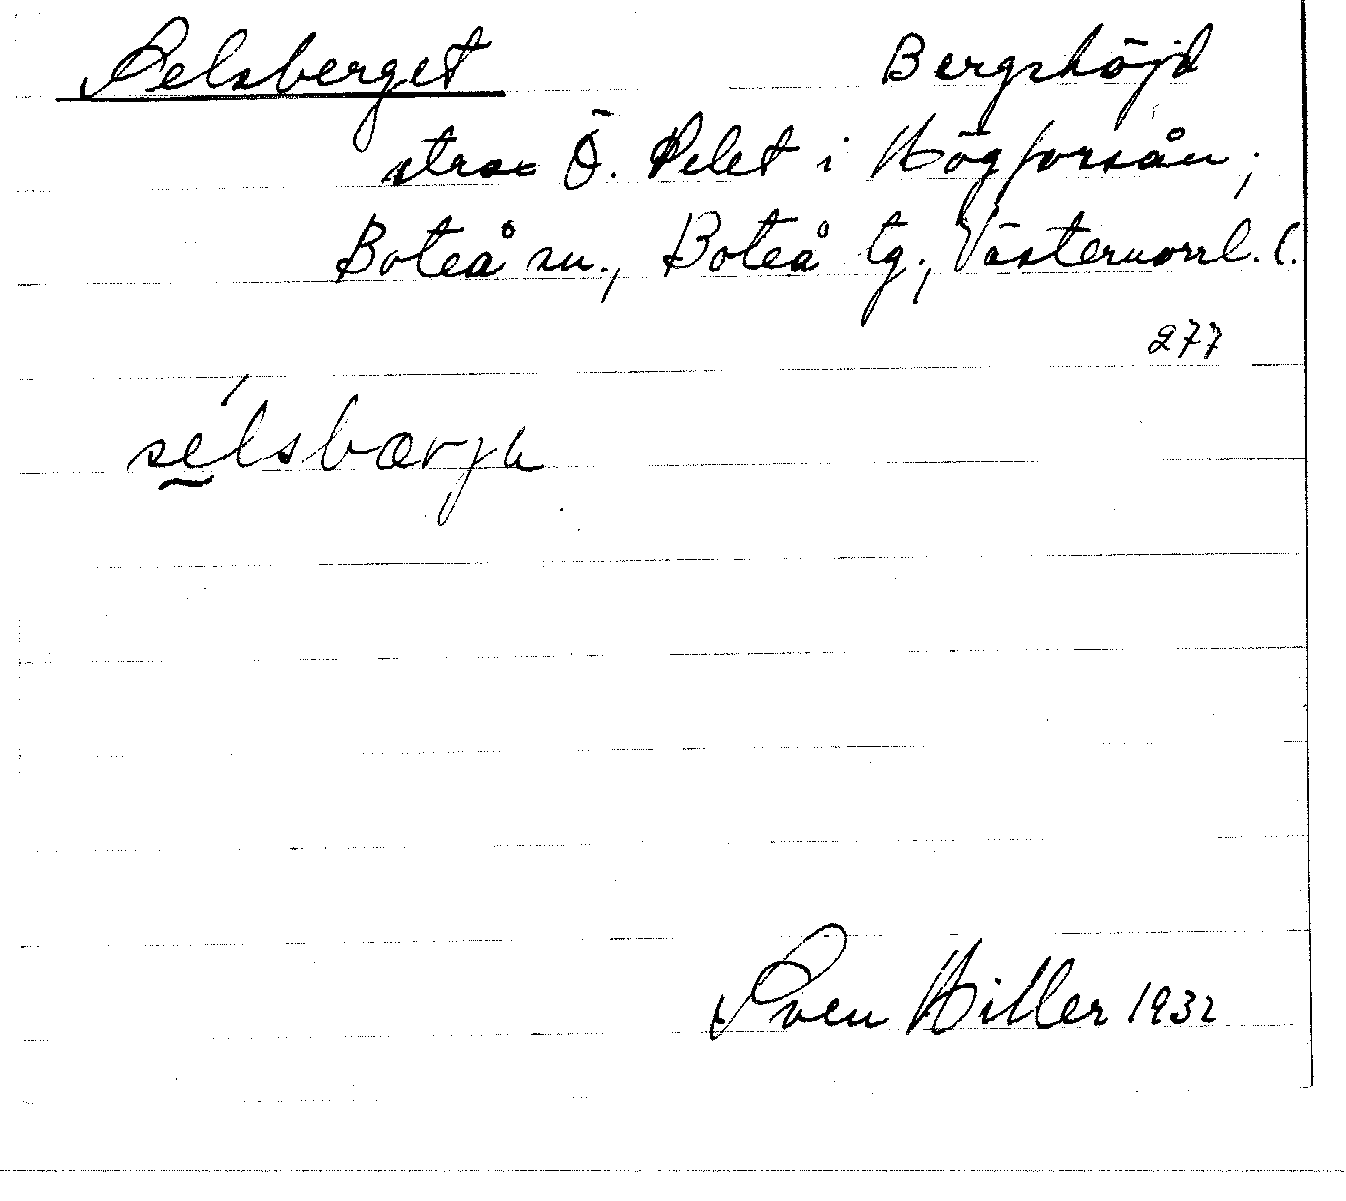 Selsberget Bergshöjd
strax Ö. Selet i Högforsån;
Boteå sn., Boteå tg., Västernorrl. l.
277
sélsbærja
Sven Hiller 1932